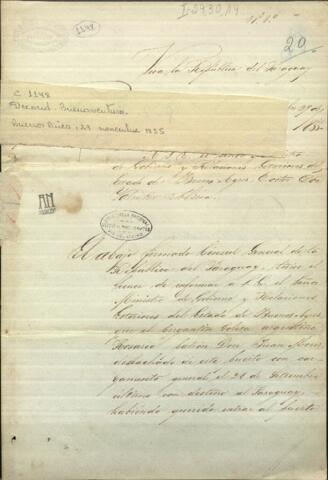 I-29,30,14
Nº 1º
1148
20
Viva la República del Paraguay
C 1148
Decoud, Buenaventura.
Buenos Aires, 29 noviembre 1855
185
A S.E. el Señor Ministro
de Gobierno y Relaciones Exteriores del
Estado de Buenos Ayres, Doctor Don
Valentin Alsina.
El abajo firmado Cónsul General de la
República del Paraguay, tiene el
honor de informar a S.E. el Señor
Ministro de Gobierno y Relaciones
Exteriores del Estado de Buenos Ayres,
que el bergantin goleta argentino
Rosario patron Don Juan
despachado de este puerto con car-
gamento general el 22 de Setiembre
ultimo con destino al Paraguay,
habiendo querido entrar al puerto